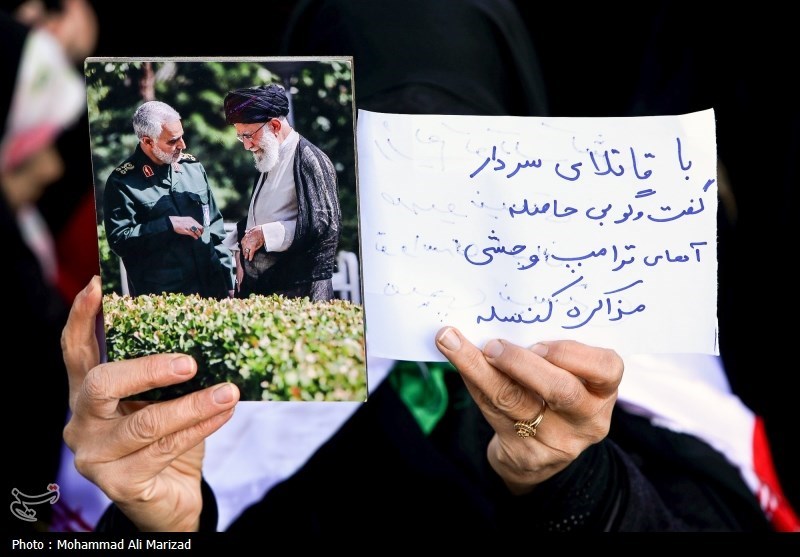 با قاتلای سردار
گفت و گو بی حاصله
آقای ترامپ وحشی
مذاکره کنسله
تسنیم
Photo : Mohammad Ali Marizad